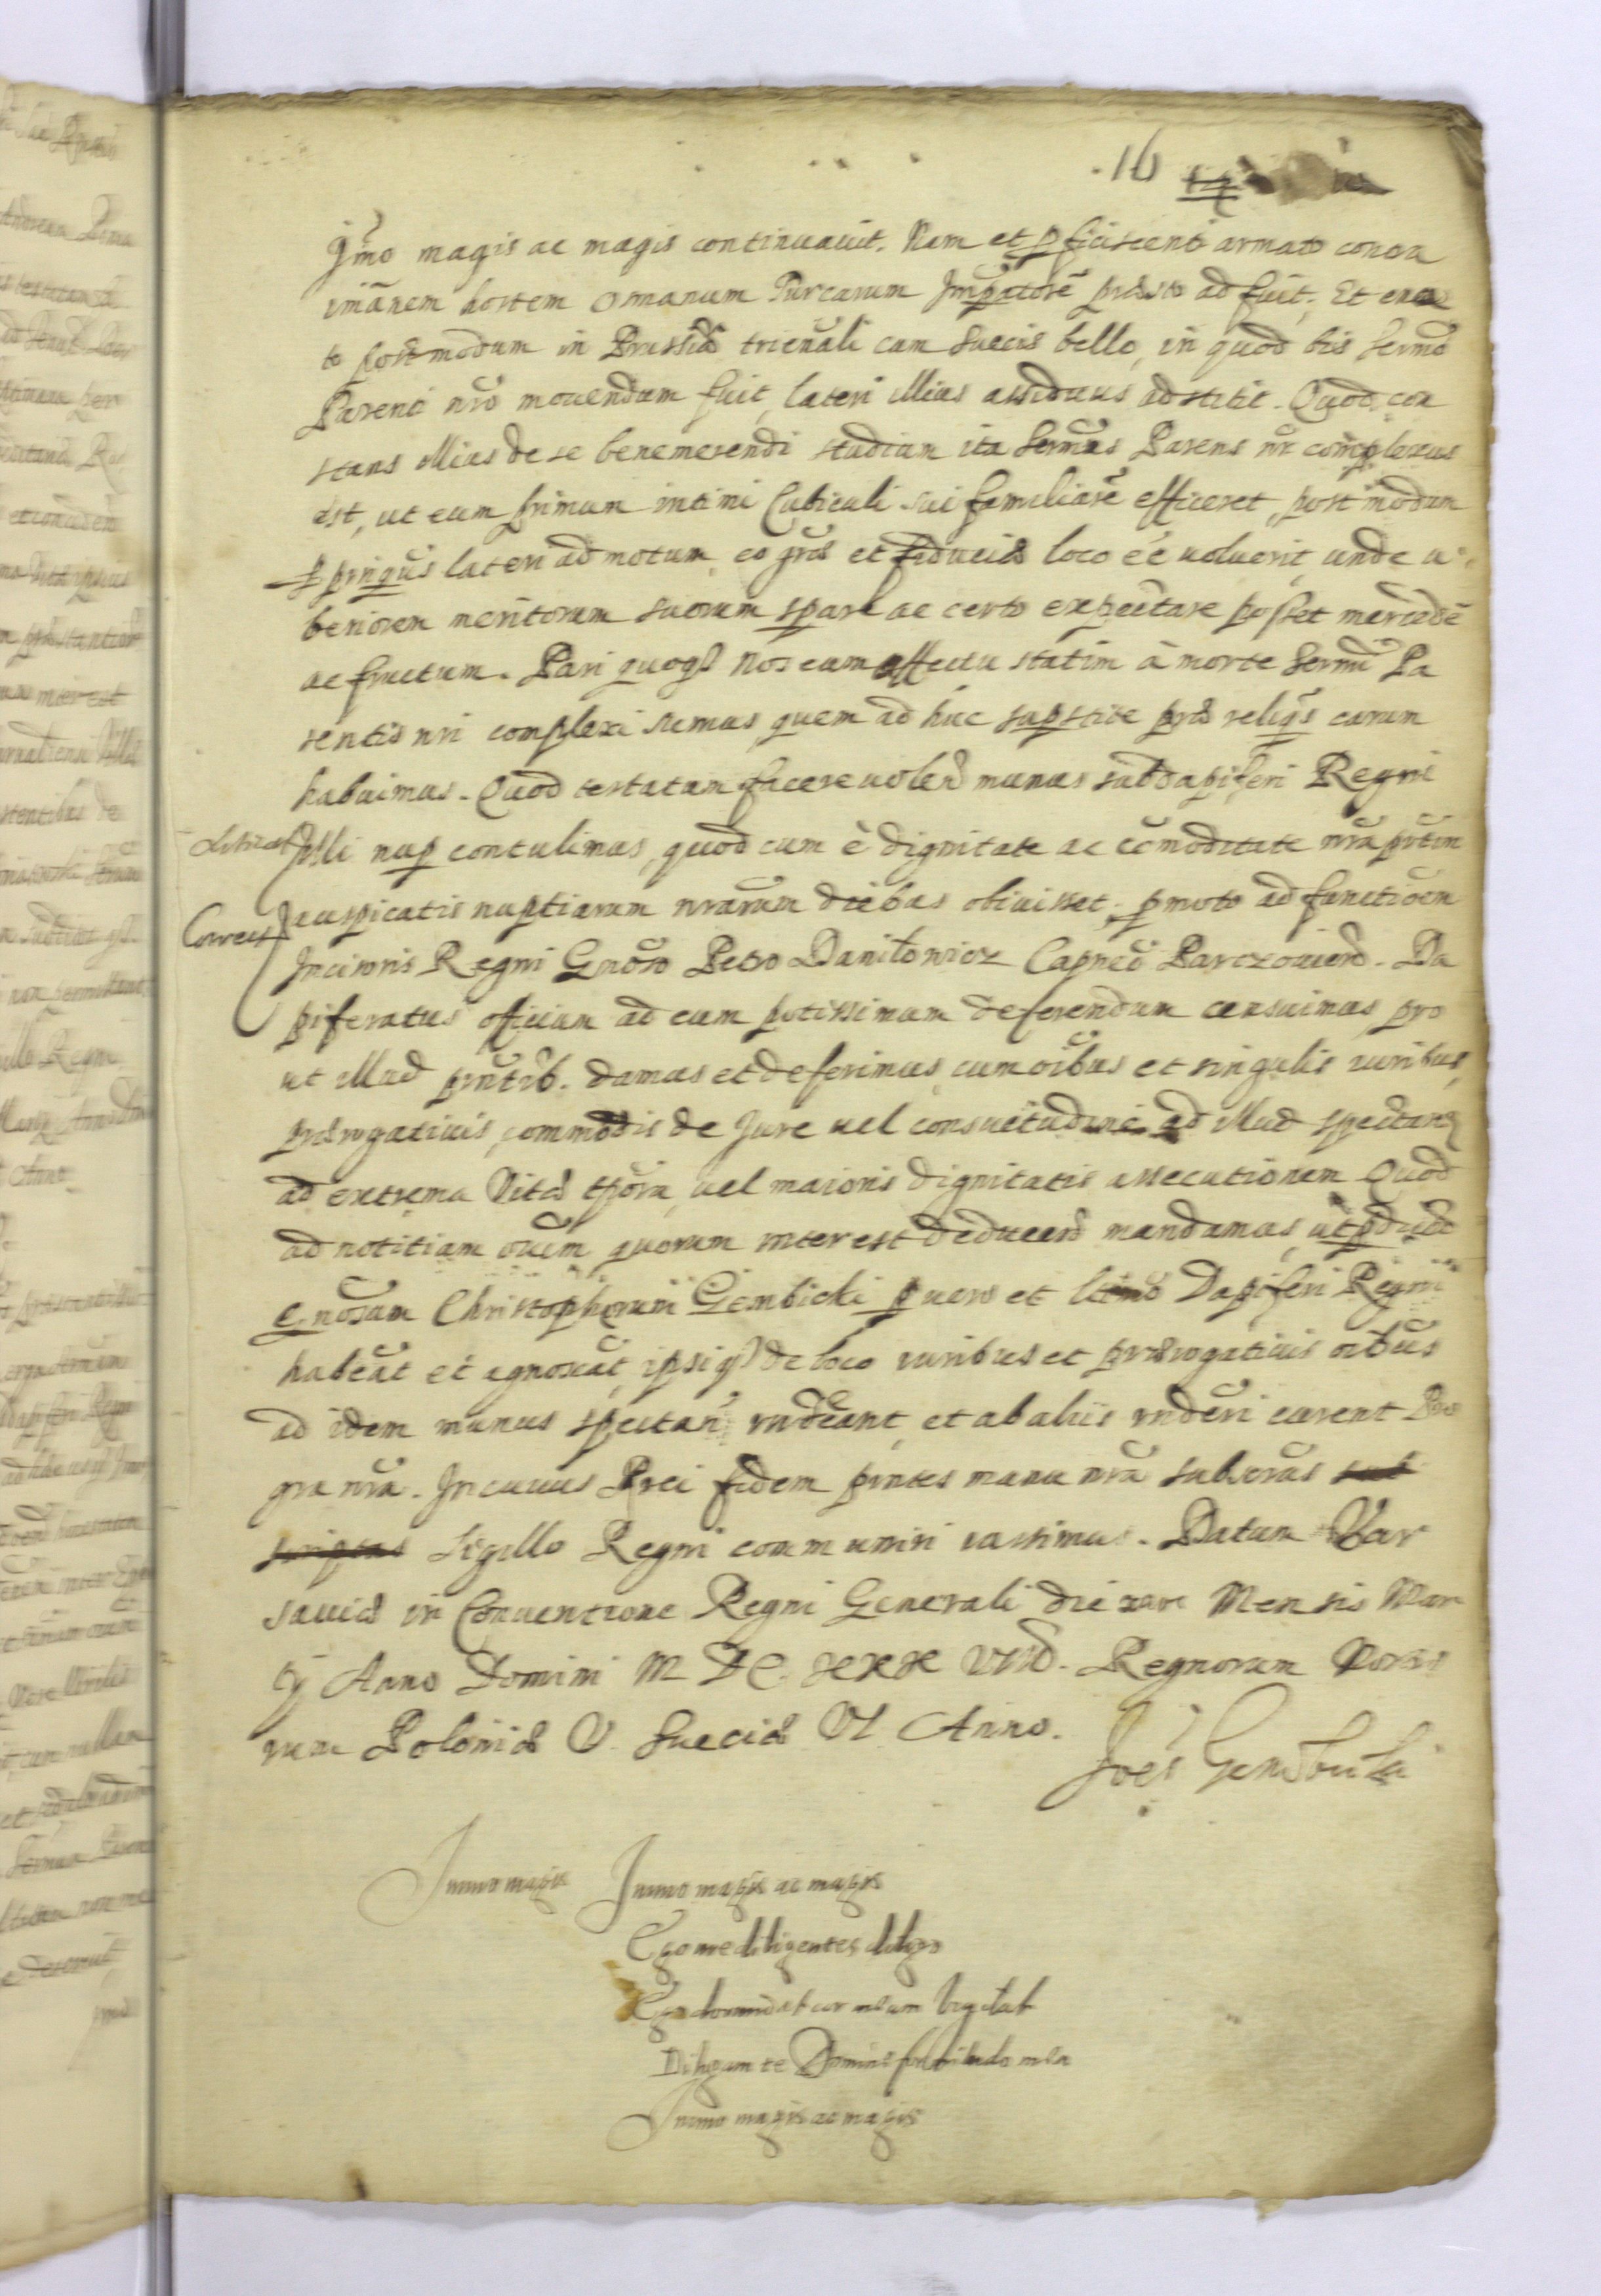 16
Imo magis ac magis continuauit. Nam et pficiscenti armato contra
imānem hostem Osmanum Turcarum Impatorē præsto ad fuit. Et exor
to postmodum in Prussia trienali cum Suecis bello, in quod bis Sermo
Parenti nro mouendum fuit, lateri illius assiduus adstitit. Quod con
stans illius de se benemerendi studium ita Sermus Parens nr complexus
est, ut eum primum intimi Cubiculi sui familiarē efficeret, post modum
ppinqus lateri ad motum, eo gras et fiduciæ loco eē uoluerit, unde u
beriorem meritorum suorum spare ac certo expectare posset mercedē
ac fructum. Pari quoq nos eum affectu statim à morte Sermi Pa
rentis nri complexi sumus, quem ad huc supstite præ reliqs carum
habuimus. Quod testatum facere uolen munus subdapiferi Regni
illi nup contulimus, quod cum è dignitate ac comoditate nra prtim
auspicatis nuptiarum nrarum diebus obiuisset, pmoto ad functioem
Correct
Incisoris Regni Gnoso Petro Daniłowicz Capneo Parczouien. Da
piferatus officium ad eum potissimum deferendum censuimus pro
ut illud pntib. damus et deferimus, cum oibus et singulis iuribus,
prærogatiuis, commodis de Jure uel consuetudine ad illud spectan
ad extrema Vitæ tpora, uel maioris dignitatis assecutionem Quod
ad notitiam oium quorum interest deducen mandamus, ut pdictū
Gnosum Christophorum Gembicki p uero et ltimo Dapifero Regni
habeāt et agnoscāt, ipsiq de loco iuribus et prærogatiuis oibus
ad idem munus spectan rndeant, et ab aliis rnderi curent Pro
gra nra. In cuius Rei fidem pntes manu nra subscras sub
scriptas Sigillo Regni communiri iussimus. Datum Var
sauiæ in Conuentione Regni Generali die Mensis Mar
tij Anno Domini M DC XXX VIII. Regnorum Nostro
rum Poloniæ V. Sueciæ VI Anno.
Immo magis Immo magis ac magis
Ego me diligentes diligo
Ego dormio et cor meum vigilat
Diligam te Domine fortitudo mea
Immo magis ac magis